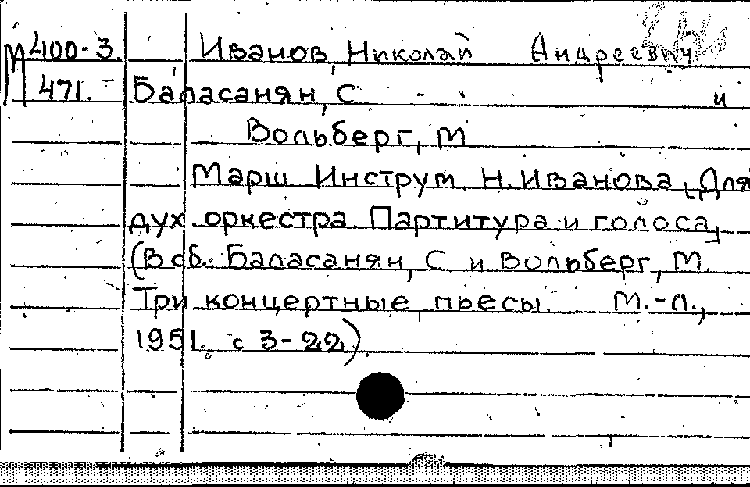 М 400-3. Иванов, Николай Андреевич
471. Баласанян, С. и
Вольберг, М
Марш. Инструм. Н. Иванова. [Для
дух. оркестра. Партитура и голоса]
(В сб. Баласанян, С. и Вольберг, М.
Три концертные пьесы. М.-Л.,
1951. с 3-22).